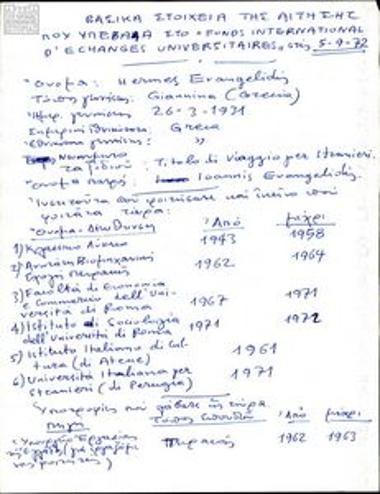 ΒΑΣΙΚΑ ΣΤΟΙΧΕΙΑ ΤΗΣ ΑΙΤΗΣΗΣ
ΠΟΥ ΥΠΕΒΑΛΑ ΣΤΟ «FUNDS INTERNATIONAL
D'ECHANGES UNIVERSITAIRES» στις 5-9-72
Όνομα: Hermes Evangelidis
Τόπος γεννήσεως: Giannina (Grecia)
Ημερ. γεννήσεως 26-3-1931
Σημερινή Ιθαγένεια: Greca
γεννήσεως: "
ταξιδιού: Titolo di Viaggio per Stranieri.
Όνομα πατρός: Ioannis Evangelidis.
Ινστιτούτα που φοίτησα και εκείνο που
φοιτάτε τώρα:
Όνομα-Διεύθυνση Από μέχρι
1) Λύκειο 1943 1958
2) Ανωτάτη Βιομηχανική
Σχολή Πειραιώς 1962 1964
3) Facoltà di Economia
e Commercio dell'Uni-
versità di Roma 1967 1971
4) Istituto di Sociologia
dell'Università di Roma 1971 1972
5) Istituto Italiano di Cul-
tura (di Atene) 1961
6) Università Italiana per
Stranieri (di Perugia) 1971
Υποτροφίες που μέχρι τώρα.
Πηγή Τόπος Σπουδών Από μέχρι
(Υπουργείο Εργασίας Πειραιάς 1962 1963